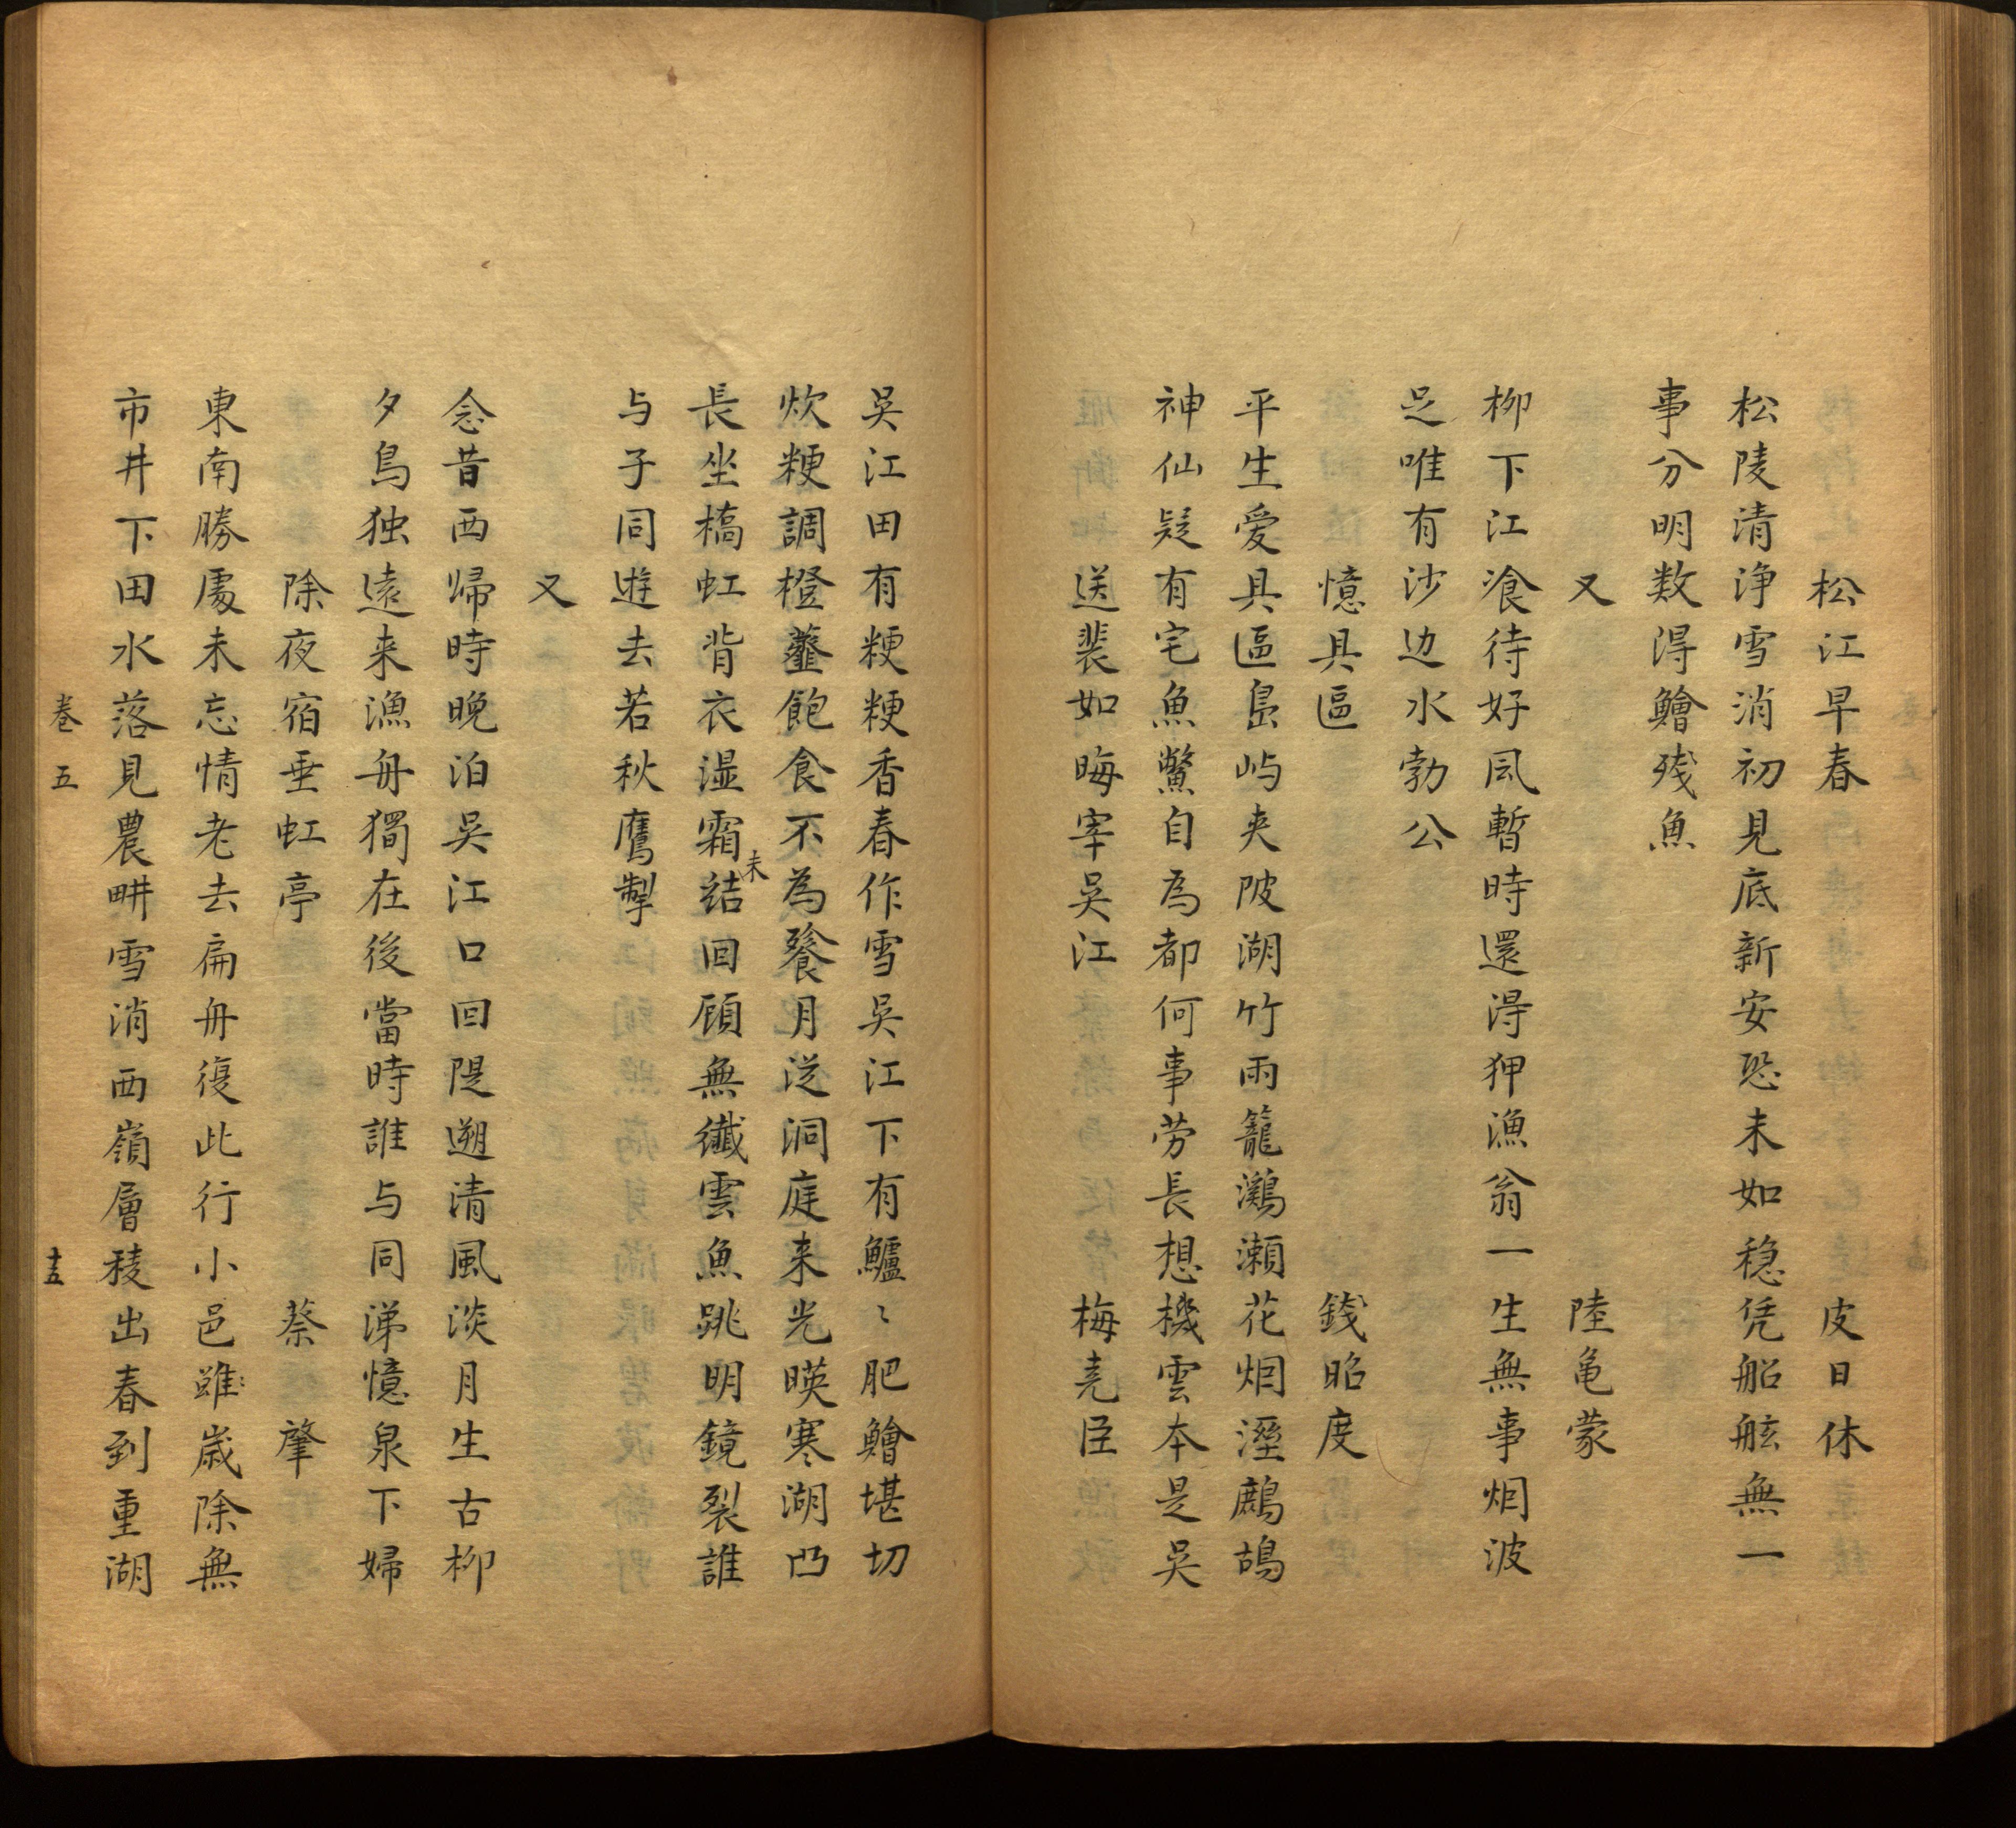 松江早春 皮日休
松陵清浄雪消初見底新安恐未如稳凭船舷無一
事分明数得鱠残魚
又 陸亀蒙
柳下江飡待好風暫時還得狎漁翁一生無事烟波
足唯有沙边水勃公
憶具區 錢昭度
平生愛具區島屿夹陂湖竹雨籠鸂瀬花烟溼鷓鴣
神仙疑有宅魚鱉自為都何事劳長想機雲本是吴
送裴如晦宰吴江 梅尭臣
吴江田有粳粳香舂作雪吴江下有鱸〻肥鱠堪切
炊粳調橙虀飽食不為餮月従洞庭来光暎寒湖凸
長坐槗虹背衣湿霜未结回顾無纎雲魚跳明鏡裂誰
与子同逰去若秋鷹掣
又
念昔西帰時晚泊吴江口回隄遡清風淡月生古柳
夕鳥独遠来漁舟獨在後當時誰与同涕憶泉下婦
除夜宿垂虹亭 蔡肇
東南勝處未忘情老去扁舟復此行小邑雖歳除無
市井下田水落見農畊雪消西嶺層稜出春到重湖
卷五 十五